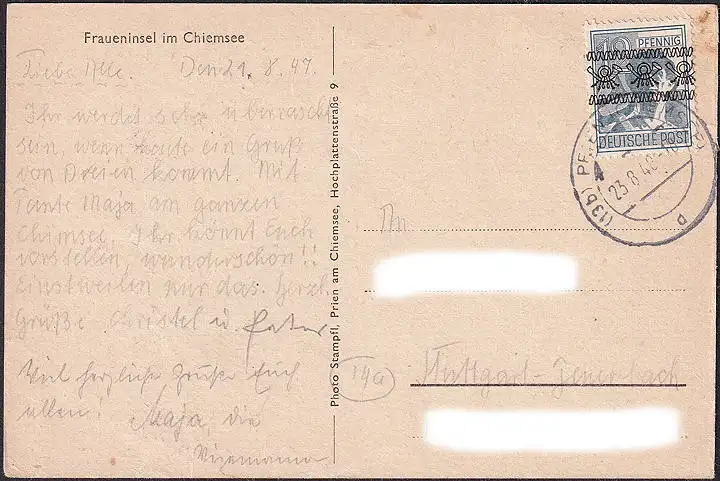 Fraueninsel im Chiemsee
Liebe Alle. Den 21.8.47.
Ihr werdet sehr überrascht
sein wenn heute ein Gruß
von Dreien kommt. Mit
Tante Maja am ganzen
Chimsee. Ihr könnt Euch
vorstellen, wunderschön!!
Einstweilen nur das. Herzl.
Grüße Christel u. Peter
Viel herzliche Grüße Euch
allen! Maja, die
Photo Stampfl, Prien am Chiemsee, Hochplattenstraße 9
12 PFENNIG
DEUTSCHE POST
(13b)
23.8.48
An
(14a) Stuttgart-